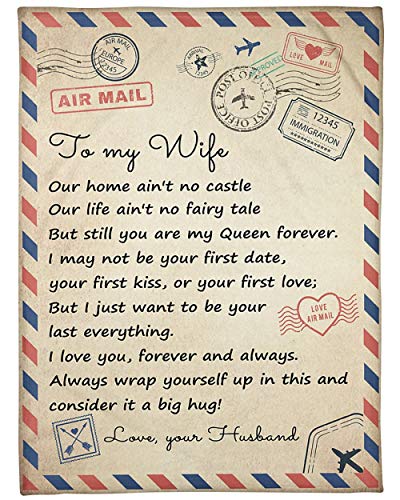 AIR MAIL
AIR MAIL
EXPRESS
12345
ANNUAL
12345
APPROVED
POST OFFICE POST OFFICE
LOVE MAIL
12345
IMMIGRATION
AIR MAIL
To my Wife
Our home ain't no castle
Our life ain't no fairy tale
But still you are my Queen forever.
I may not be your first date,
your first kiss, or your first love;
But I just want to be your
last everything.
LOVE
AIR MAIL
I love you, forever and always.
Always wrap yourself up in this and
consider it a big hug!
Love, your Husband